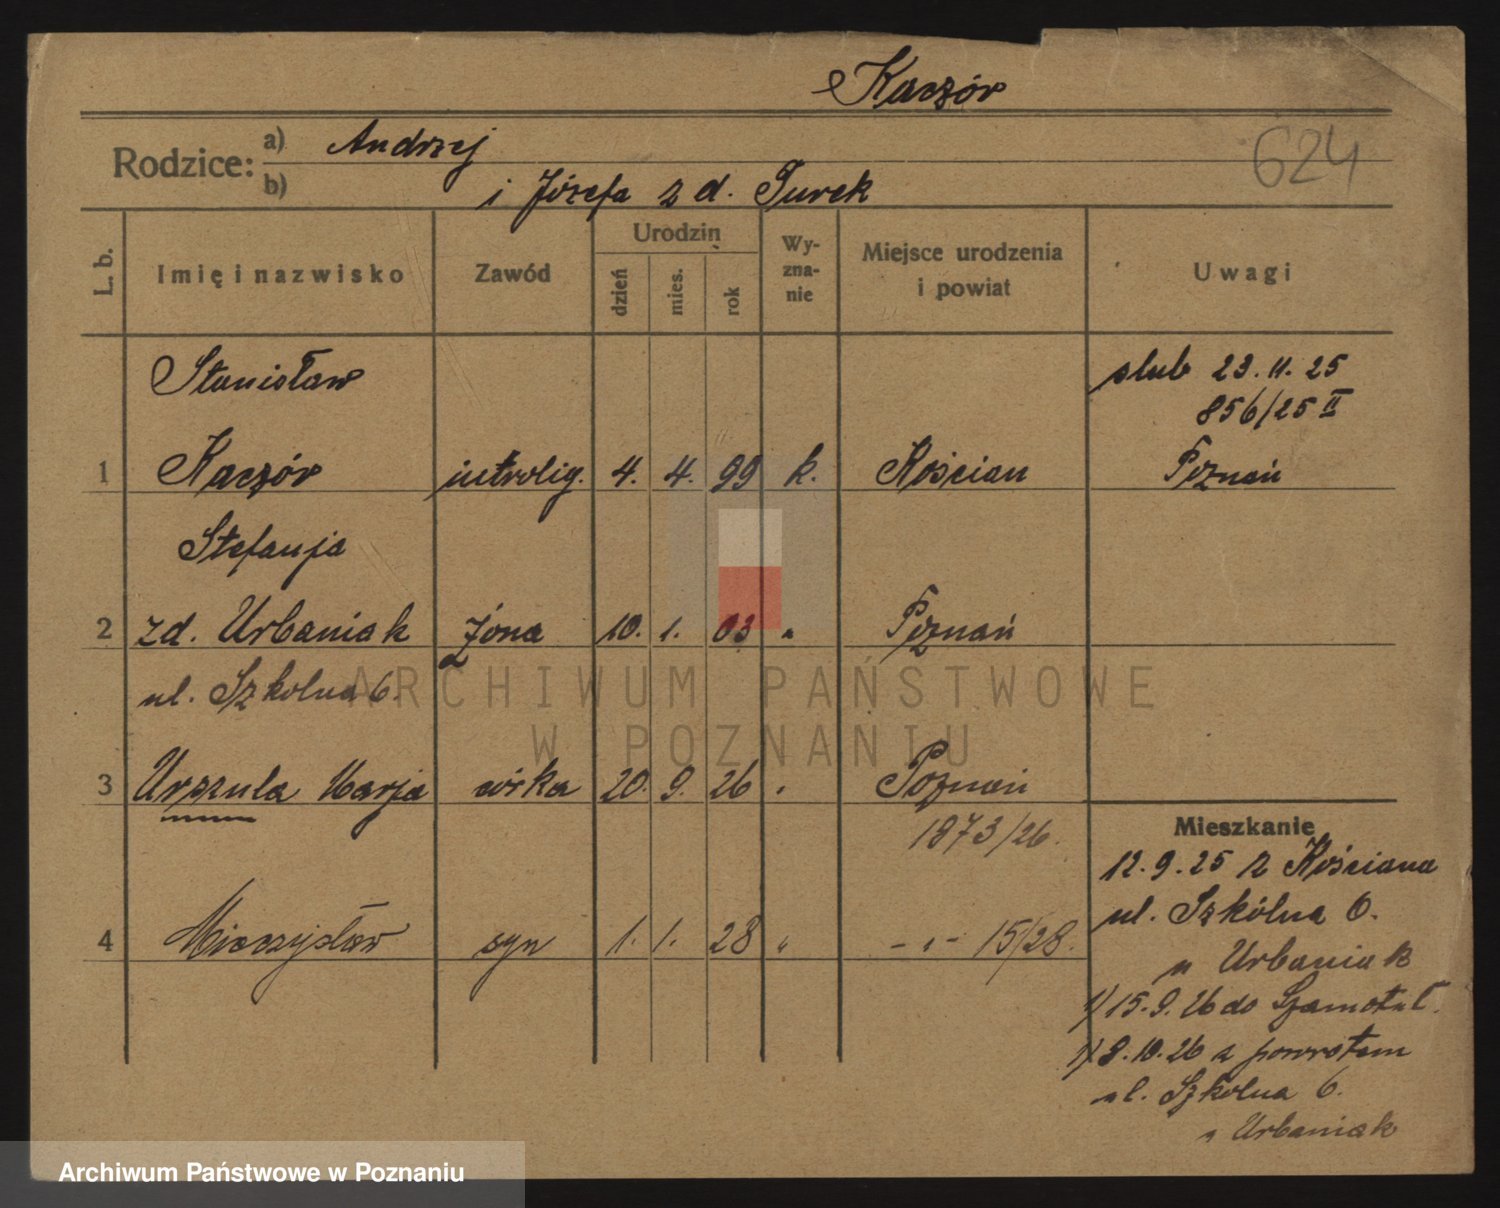 Kaczór
624
Rodzice: a) Andrzej
b) i Józefa z d. Turek
L. b. Imię i nazwisko Zawód Urodzin dzień mies. rok Wy-zna-nie Miejsce urodzenia i powiat Uwagi
Stanisław ślub 23.11.25
856/25 II
1 Kaczór introlig. 4. 4. 99 k. Kościan Poznań
Stefanja
2 z d. Urbaniak żona 10. 1. 03 " Poznań
ul. Szkolna 6.
3 Urszula Marja córka 20. 9. 26 " Poznań
1873/26.
4 Mieczysław syn 1. 1. 28 " - " - 15/28.
Mieszkanie
12.9.25 z Kościana
ul. Szkólna 6.
u Urbaniak
1) 15.9.26 do Szamotuł.
1) 8.10.26 z powrotem
ul. Szkolna 6.
u Urbaniak
ARCHIWUM PAŃSTWOWE
W POZNANIU
Archiwum Państwowe w Poznaniu